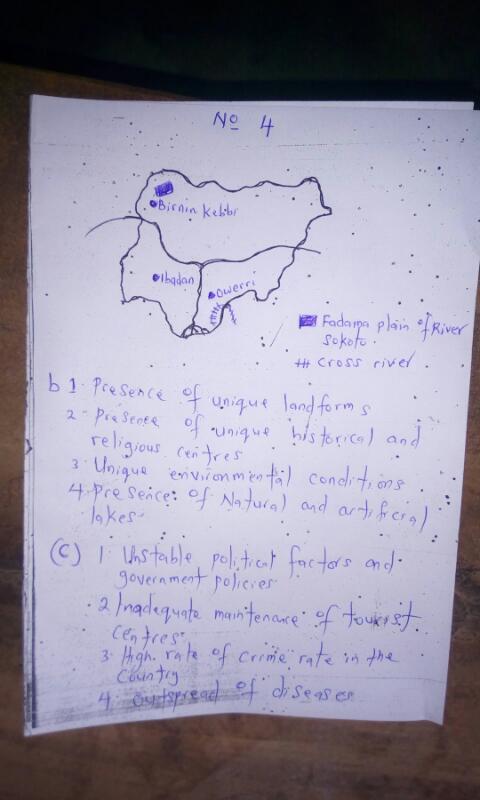 No 4
Birnin Kebbi
Ibadan
Owerri
Fadama plain of River
Sokoto
Cross river
b 1. Presence of unique landforms
2 Presence of unique historical and
religious centres
3. Unique environmental conditions
4. Presence of Natural and artificial
lakes.
(C) 1. Unstable political factors and
government policies.
2 Inadequate maintenance of tourist
centres.
3. High rate of crime rate in the
Country
4. Outspread of diseases